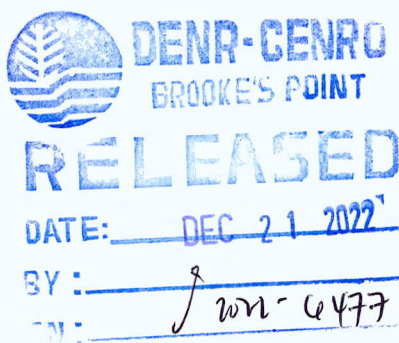 DENR-CENRO
BROOKE'S POINT
RELEASED
DATE: DEC 21 2022
BY :
2022-6477